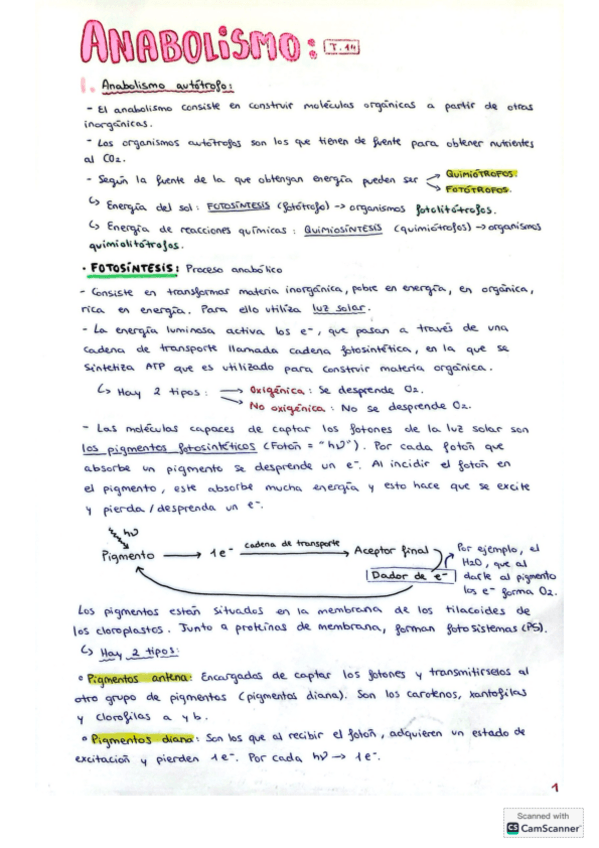 ANABOLISMO: T.14
1. Anabolismo autótrofo:
- El anabolismo consiste en construir moléculas orgánicas a partir de otras
inorgánicas.
- Los organismos autótrofos son los que tienen de fuente para obtener nutrientes
al CO2.
- Según la fuente de la que obtengan energía pueden ser → QUIMIÓTROFOS.
→ FOTÓTROFOS.
↳ Energía del sol: FOTOSÍNTESIS (fotótrofo) → organismos fotolitótrofos.
↳ Energía de reacciones químicas: QUIMIOSÍNTESIS (quimiótrofos) → organismos
quimiolitótrofos.
· FOTOSÍNTESIS: Proceso anabólico
- Consiste en transformar materia inorgánica, pobre en energía, en orgánica,
rica en energía. Para ello utiliza luz solar.
- La energía luminosa activa los e-, que pasan a través de una
cadena de transporte llamada cadena fotosintética, en la que se
sintetiza ATP que es utilizado para construir materia orgánica.
↳ Hay 2 tipos: → Oxigénica: Se desprende O2.
→ No oxigénica: No se desprende O2.
- Las moléculas capaces de captar los fotones de la luz solar son
los pigmentos fotosintéticos (Fotón = "hν"). Por cada fotón que
absorbe un pigmento se desprende un e-. Al incidir el fotón en
el pigmento, este absorbe mucha energía y esto hace que se excite
y pierda/desprenda un e-.
hν
Pigmento → 1e- cadena de transporte → Aceptor final
Dador de e-
Por ejemplo, el
H2O, que al
darle al pigmento
los e- forma O2.
Los pigmentos están situados en la membrana de los tilacoides de
los cloroplastos. Junto a proteínas de membrana, forman fotosistemas (PS).
↳ Hay 2 tipos:
° Pigmentos antena: Encargados de captar los fotones y transmitírselos al
otro grupo de pigmentos (pigmentos diana). Son los carotenos, xantofilas
y clorofilas a y b.
° Pigmentos diana: Son los que al recibir el fotón, adquieren un estado de
excitación y pierden 1e-. Por cada hν → 1e-.
1
Scanned with
CS CamScanner